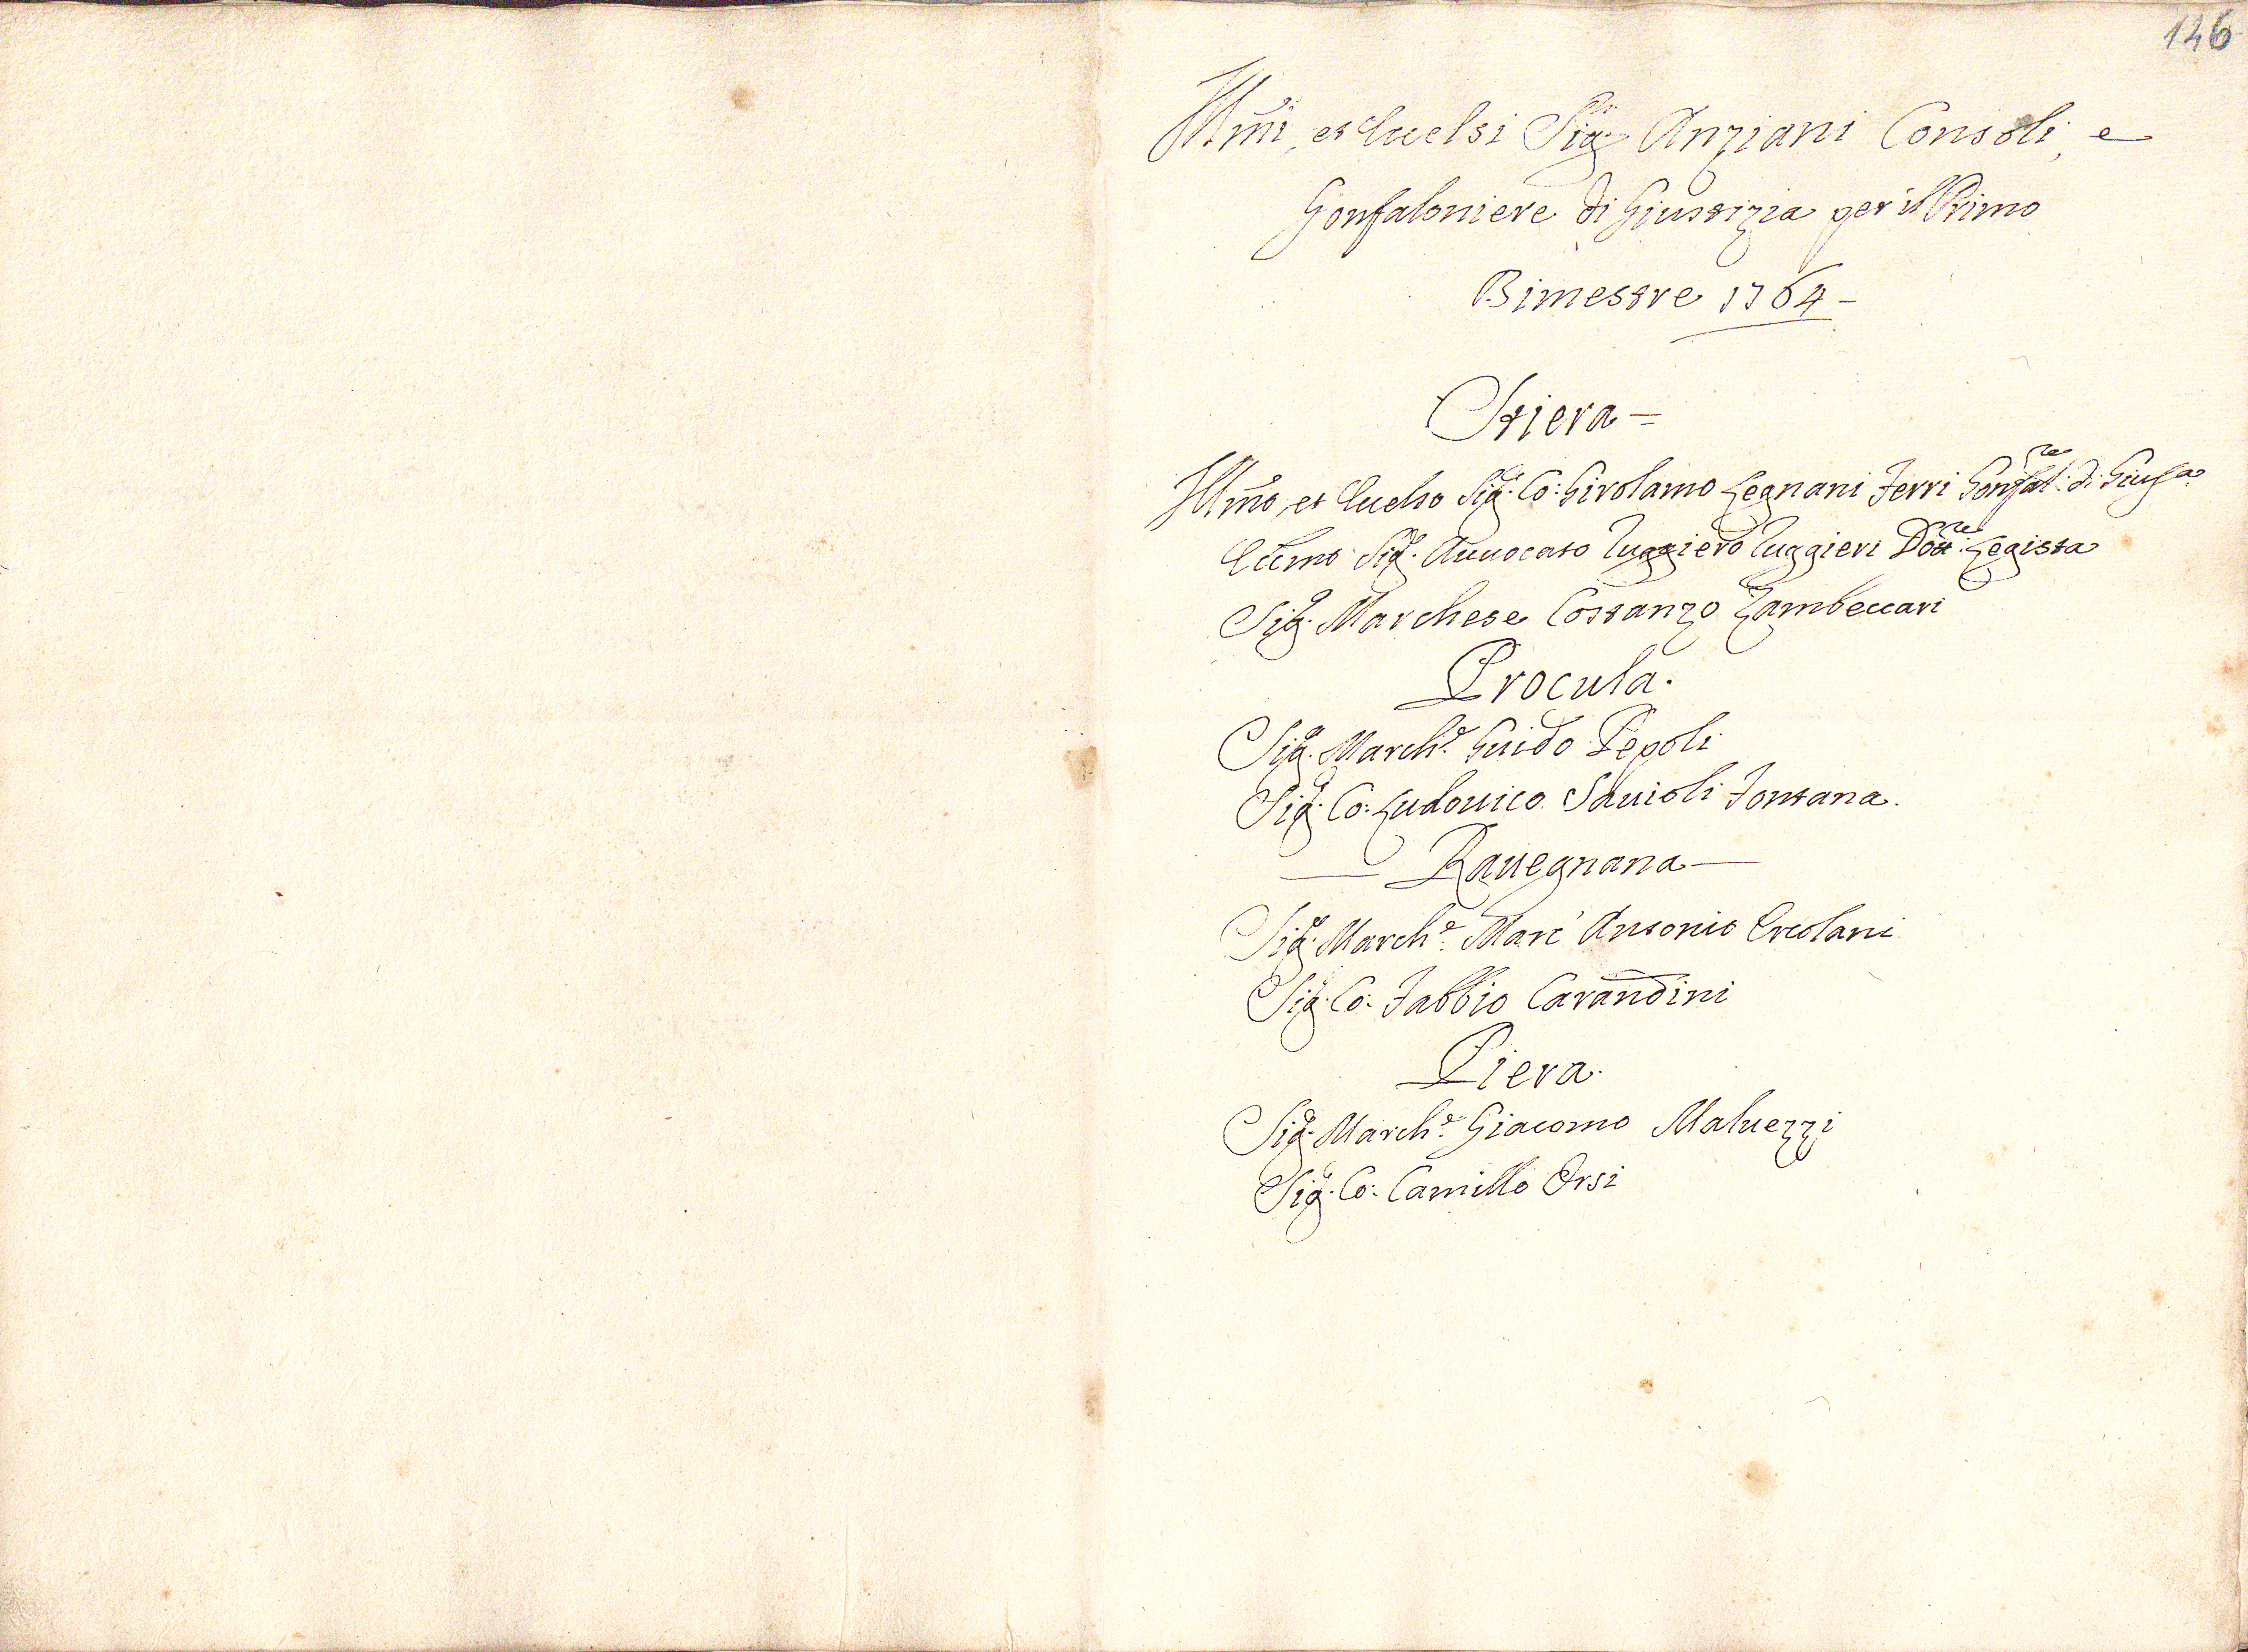 146
Illmi, et Eccelsi Sigri Anziani Consoli, e
Gonfaloniere di Giustizia per il Primo
Bimestre 1764 -
Stiera =
Illmo, et Eccelso Sigr. Co: Girolamo Legnani Ferri Gonfalre: di Giusa.
Eccmo Sigr. Auuocato Ruggiero Ruggieri Dottre: Legista
Sigr. Marchese Costanzo Zambeccari
Procula.
Sigr. Marche. Guido Pepoli
Sigr. Co: Ludouico Sauioli Fontana.
— Rauegnana —
Sigr. Marche: Marc' Antonio Ercolani
Sigr. Co: Fabbio Carandini
Piera.
Sigr. Marche: Giacomo Maluezzi
Sigr. Co: Camillo Orsi